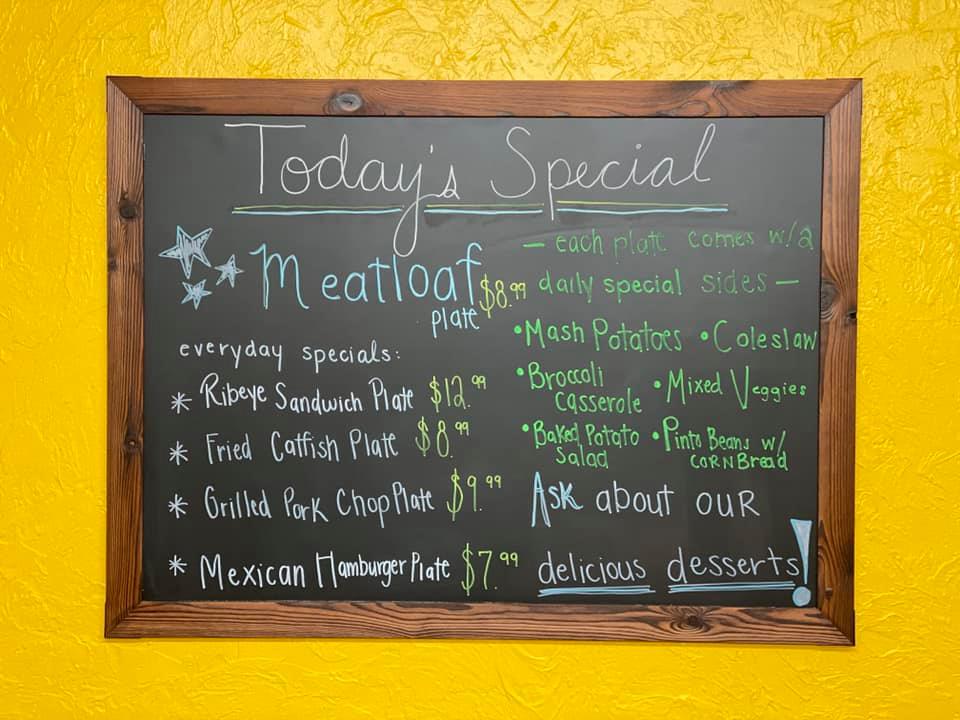 Today's Special
Meatloaf $8.99
plate
everyday specials:
* Ribeye Sandwich Plate $12.99
* Fried Catfish Plate $8.99
* Grilled Pork Chop Plate $9.99
* Mexican Hamburger Plate $7.99
— each plate comes w/2
daily special sides —
• Mash Potatoes • Coleslaw
• Broccoli
casserole
• Mixed Veggies
• Baked Potato
Salad
• Pinto Beans w/
CORN Bread
Ask about our
delicious desserts!